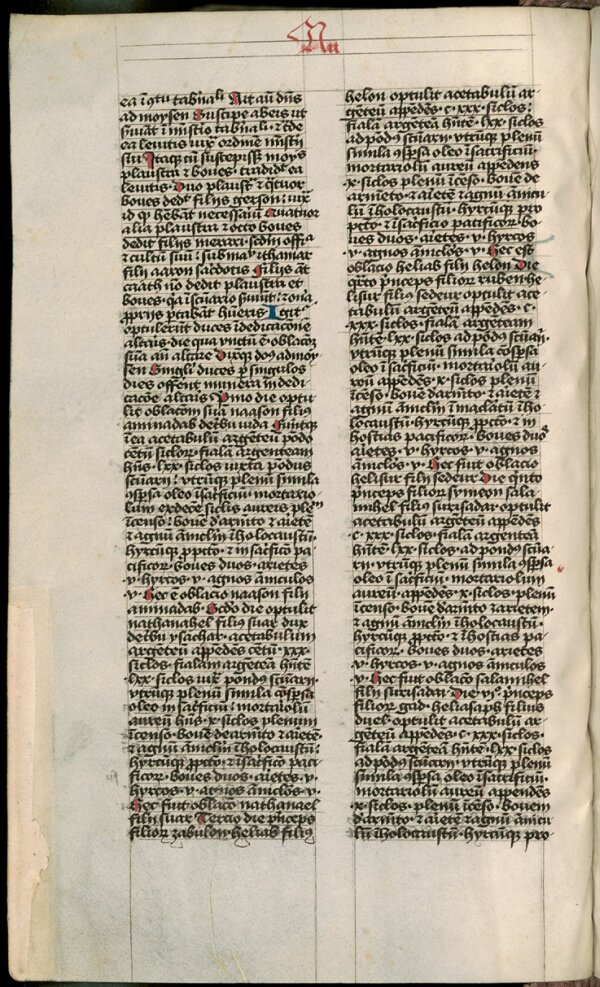 Nu
ea ī ꝯtu tab̄nali Ait aū dn̄s
ad moysen Suscipe ab eis ut
ẜuiāt ī mīst̄io tab̄nali · ⁊ t̄de
ea leuitis iux̄ ordinē mīst̄ij
sui Itaqꝫ cū suscepissꝫ moys̄
plaustra ⁊ boues · tradidt̄ ea
leuitis · Duo plaust̄ ⁊ q̄tuor
boues dedt̄ filijs gerson · iux̄
id qd̄ hēbāt necessariū Quatuor
alia plaustra ⁊ octo boues
dedit filijs merari · scdm̄ offi̅a
⁊ cultū suū · sub manu ythamar
filij aaron sac̄dotis Filijs āt
caath nō dedit plaustra et
boues · qꝛ ī sc̄uario ẜuiūt · ⁊ on̄a
ꝓprijs portabāt hūeris Igit̄
optulerūt duces ī dedicacōne
altaris · die qua vnctū ē · oblacōꝫ
suā añ altare Dixitqꝫ dn̄s ad moy-
sen Singli duces ꝑ singulos
dies offerāt munera ī dedi-
cacōꝫ altaris · Pmo die optu-
lit oblacōm suā naason filius
aminadab de t̄bu iuda Fuitqꝫ
ī ea acetabulū argēteū pōdo
cētū · siclorꝝ · fiala argenteam
hn̄s · lxx · siclos iuxta pōdus
sc̄uarij · vtrūqꝫ plenū simila
ꝯspsa oleo ī sac̄ficiū · mortario-
lum ex decē siclis aureis plen̄
ī censo · bouē d'armēto · ⁊ arietē
⁊ agnū anniclm̄ ī holocaustū ·
hyrcūqꝫ ꝓ pctō · ⁊ in sac̄ficō pa-
cificorꝝ · boues duos · arietes
· v · hyrcos · v · agnos anniculos
· v · Hec ē oblacio naason filij
aminadab Scd̄o die optulit
nathanahel filius suar dux
de t̄bu ysachar · acetabulum
argēteū appēdēs cētū · xxx ·
siclos · fialam argēteā hn̄tē
· lxx · siclos iux̄ pondꝰ sc̄uarij ·
vtrūqꝫ plenū simila cōspsa
oleo in sac̄ficiū · mortariolū
aureū hn̄s · x · siclos plenum
ī cenſo · bouē de armēto ⁊ arietē ·
⁊ agnū anniclm̄ ī holocaustū ·
hyrcūqꝫ ꝓ pctō · ⁊ ī sac̄ficō paci-
ficorꝝ · boues duos · arietes · v ·
hyrcos · v · agnos anniclos · v ·
Hec fuit oblaco nathanael
filij suar Tercio die p̄nceps
filiorꝝ zabulon · heliab filiꝰ
helon optulit acetabulū ar-
gēteū appēdēs · c · xxx · siclos ·
fialā argēteā hn̄tē · lxx · siclos
ad pōdꝰ sc̄uarij · vtrūqꝫ plenū
simila ꝯspsa oleo ī sac̄rificiū ·
mortariolū aureū appendens
· x · siclos plenū ī cēso · bouē de
armēto · ⁊ arietē ⁊ agnū annicu-
lū ī holocaustū · hyrcūqꝫ pro
pctō · ⁊ ī sac̄ficio pacificorꝝ bo-
ues duos · arietes · v · hyrcos
· v · agnos anniclōs · v · Hec est
oblacio heliab filij helon Die
q̄rto p̄nceps filiorꝝ ruben he-
lisur filiꝰ sedeur optulit ace-
tabulū argēteū appēdēs · c ·
xxx · siclos · fialā argēteam
hn̄tē · lxx · siclos ad pōdꝰ sc̄uarij ·
vtrūqꝫ plenū simila cōspsa
oleo ī sac̄ficiū · mortariolū au-
reū appēdēs · x · siclos plenū
ī cēso · bouē d'armēto · ⁊ arietē ⁊
agnū anniclm̄ ī maclatū ī ho-
locaustū · hyrcūqꝫ ꝓ pctō · ⁊ in
hostias pacificorꝝ · boues duoˢ
arietes · v · hyrcos · v · agnos
anniclos · v · Hec fuit oblacio
helisur filij sedeur Die q̄nto
p̄nceps filiorꝝ symeon sala-
mihel filius surisadar optulit
acetabulū argēteū appēdēs
· c · xxx · siclos · fialā argenteā
hn̄tē · lxx · siclos · ad pondꝰ sc̄ua-
rij · vtrūqꝫ plenū simila ꝯspsa
oleo ī sac̄ficiū · mortariolum
aureū appēdēs · x · siclos · plenū
ī censo · bouē d'armēto ⁊ arietem ·
⁊ agnū anniclm̄ ī holocaustū ·
hyrcūqꝫ ꝓ pctō · ⁊ ī hostias pa-
cificorꝝ · boues duos · arietes
· v · hyrcos · v · agnos anniculos
· v · Hec fuit oblaco salamihel
filij surisadar · Die vi° p̄nceps
filiorꝝ gad · heliasaph filius
duel · optulit acetabulū ar-
gēteū appēdēs · c · xxx · siclos ·
fialā argēteā hn̄tē · lxx · siclos
ad pōdꝰ sc̄uarij vtrūqꝫ plenū
simila ꝯspsa oleo ī sac̄ficiū ·
mortariolū aureū appendēs
· x · siclos · plenū ī cēso · bouem
d'armēto · ⁊ arietē ⁊ agnū annicu-
lū ī holocaustū · hyrcūqꝫ pro-